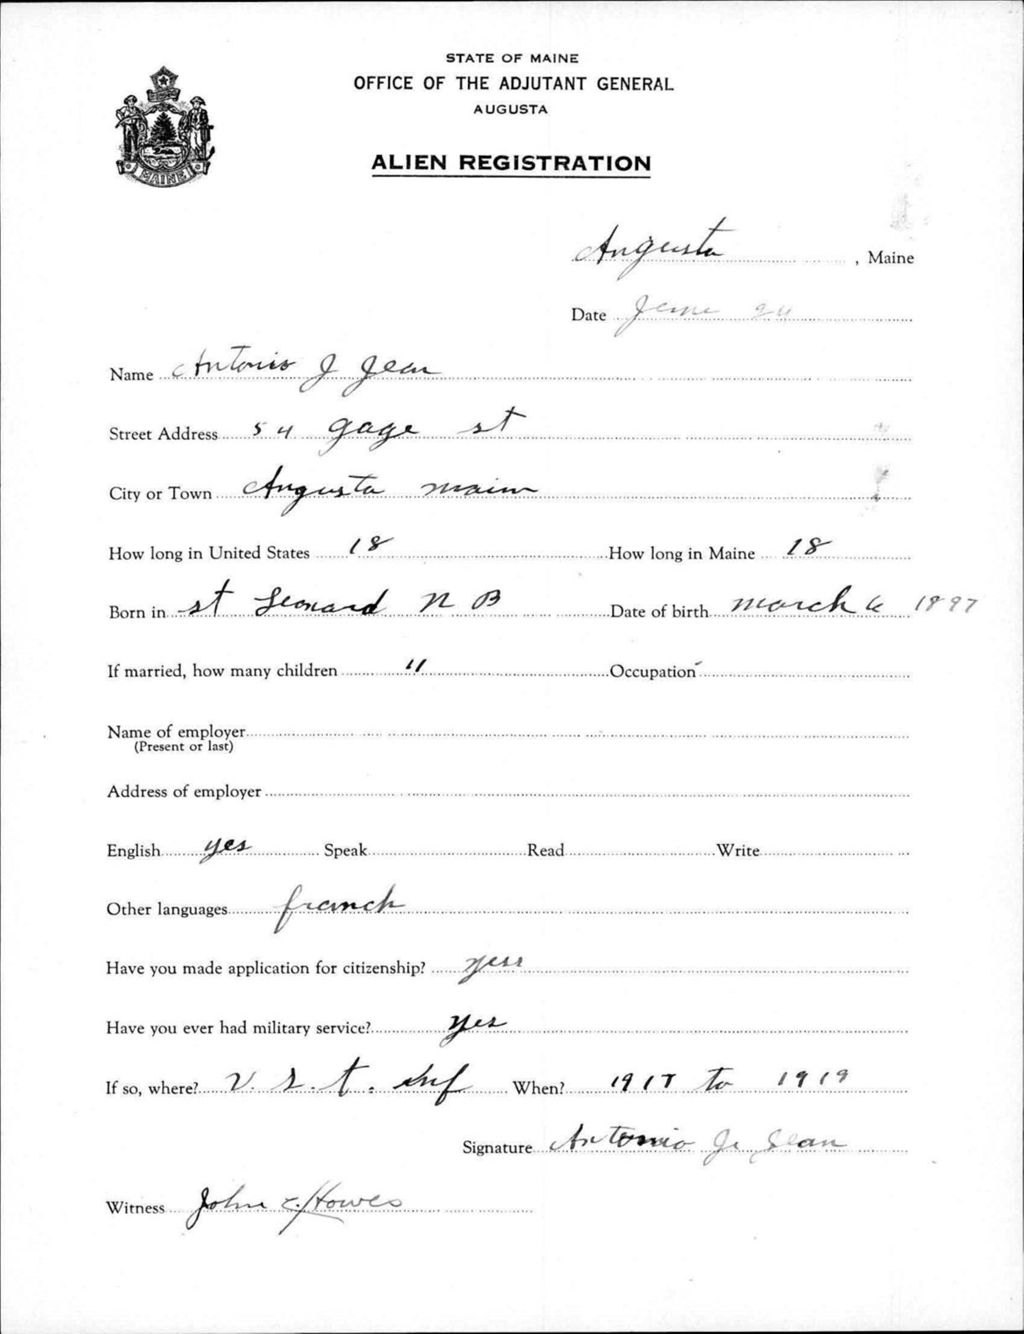 STATE OF MAINE
OFFICE OF THE ADJUTANT GENERAL
AUGUSTA
ALIEN REGISTRATION
MAINE
Augusta, Maine
Date June 24
Name Antonio J Jean
Street Address 54 gage st
City or Town Augusta Maine
How long in United States 18 How long in Maine 18
Born in st Leonard N B Date of birth march 6 1897
If married, how many children 11 Occupation
Name of employer
(Present or last)
Address of employer
English yes Speak Read Write
Other languages french
Have you made application for citizenship? yes
Have you ever had military service? yes
If so, where? Inf When? 1917 to 1919
Signature Antonio J. Jean
Witness John C. Howes